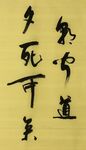 朝闻道
夕死可矣